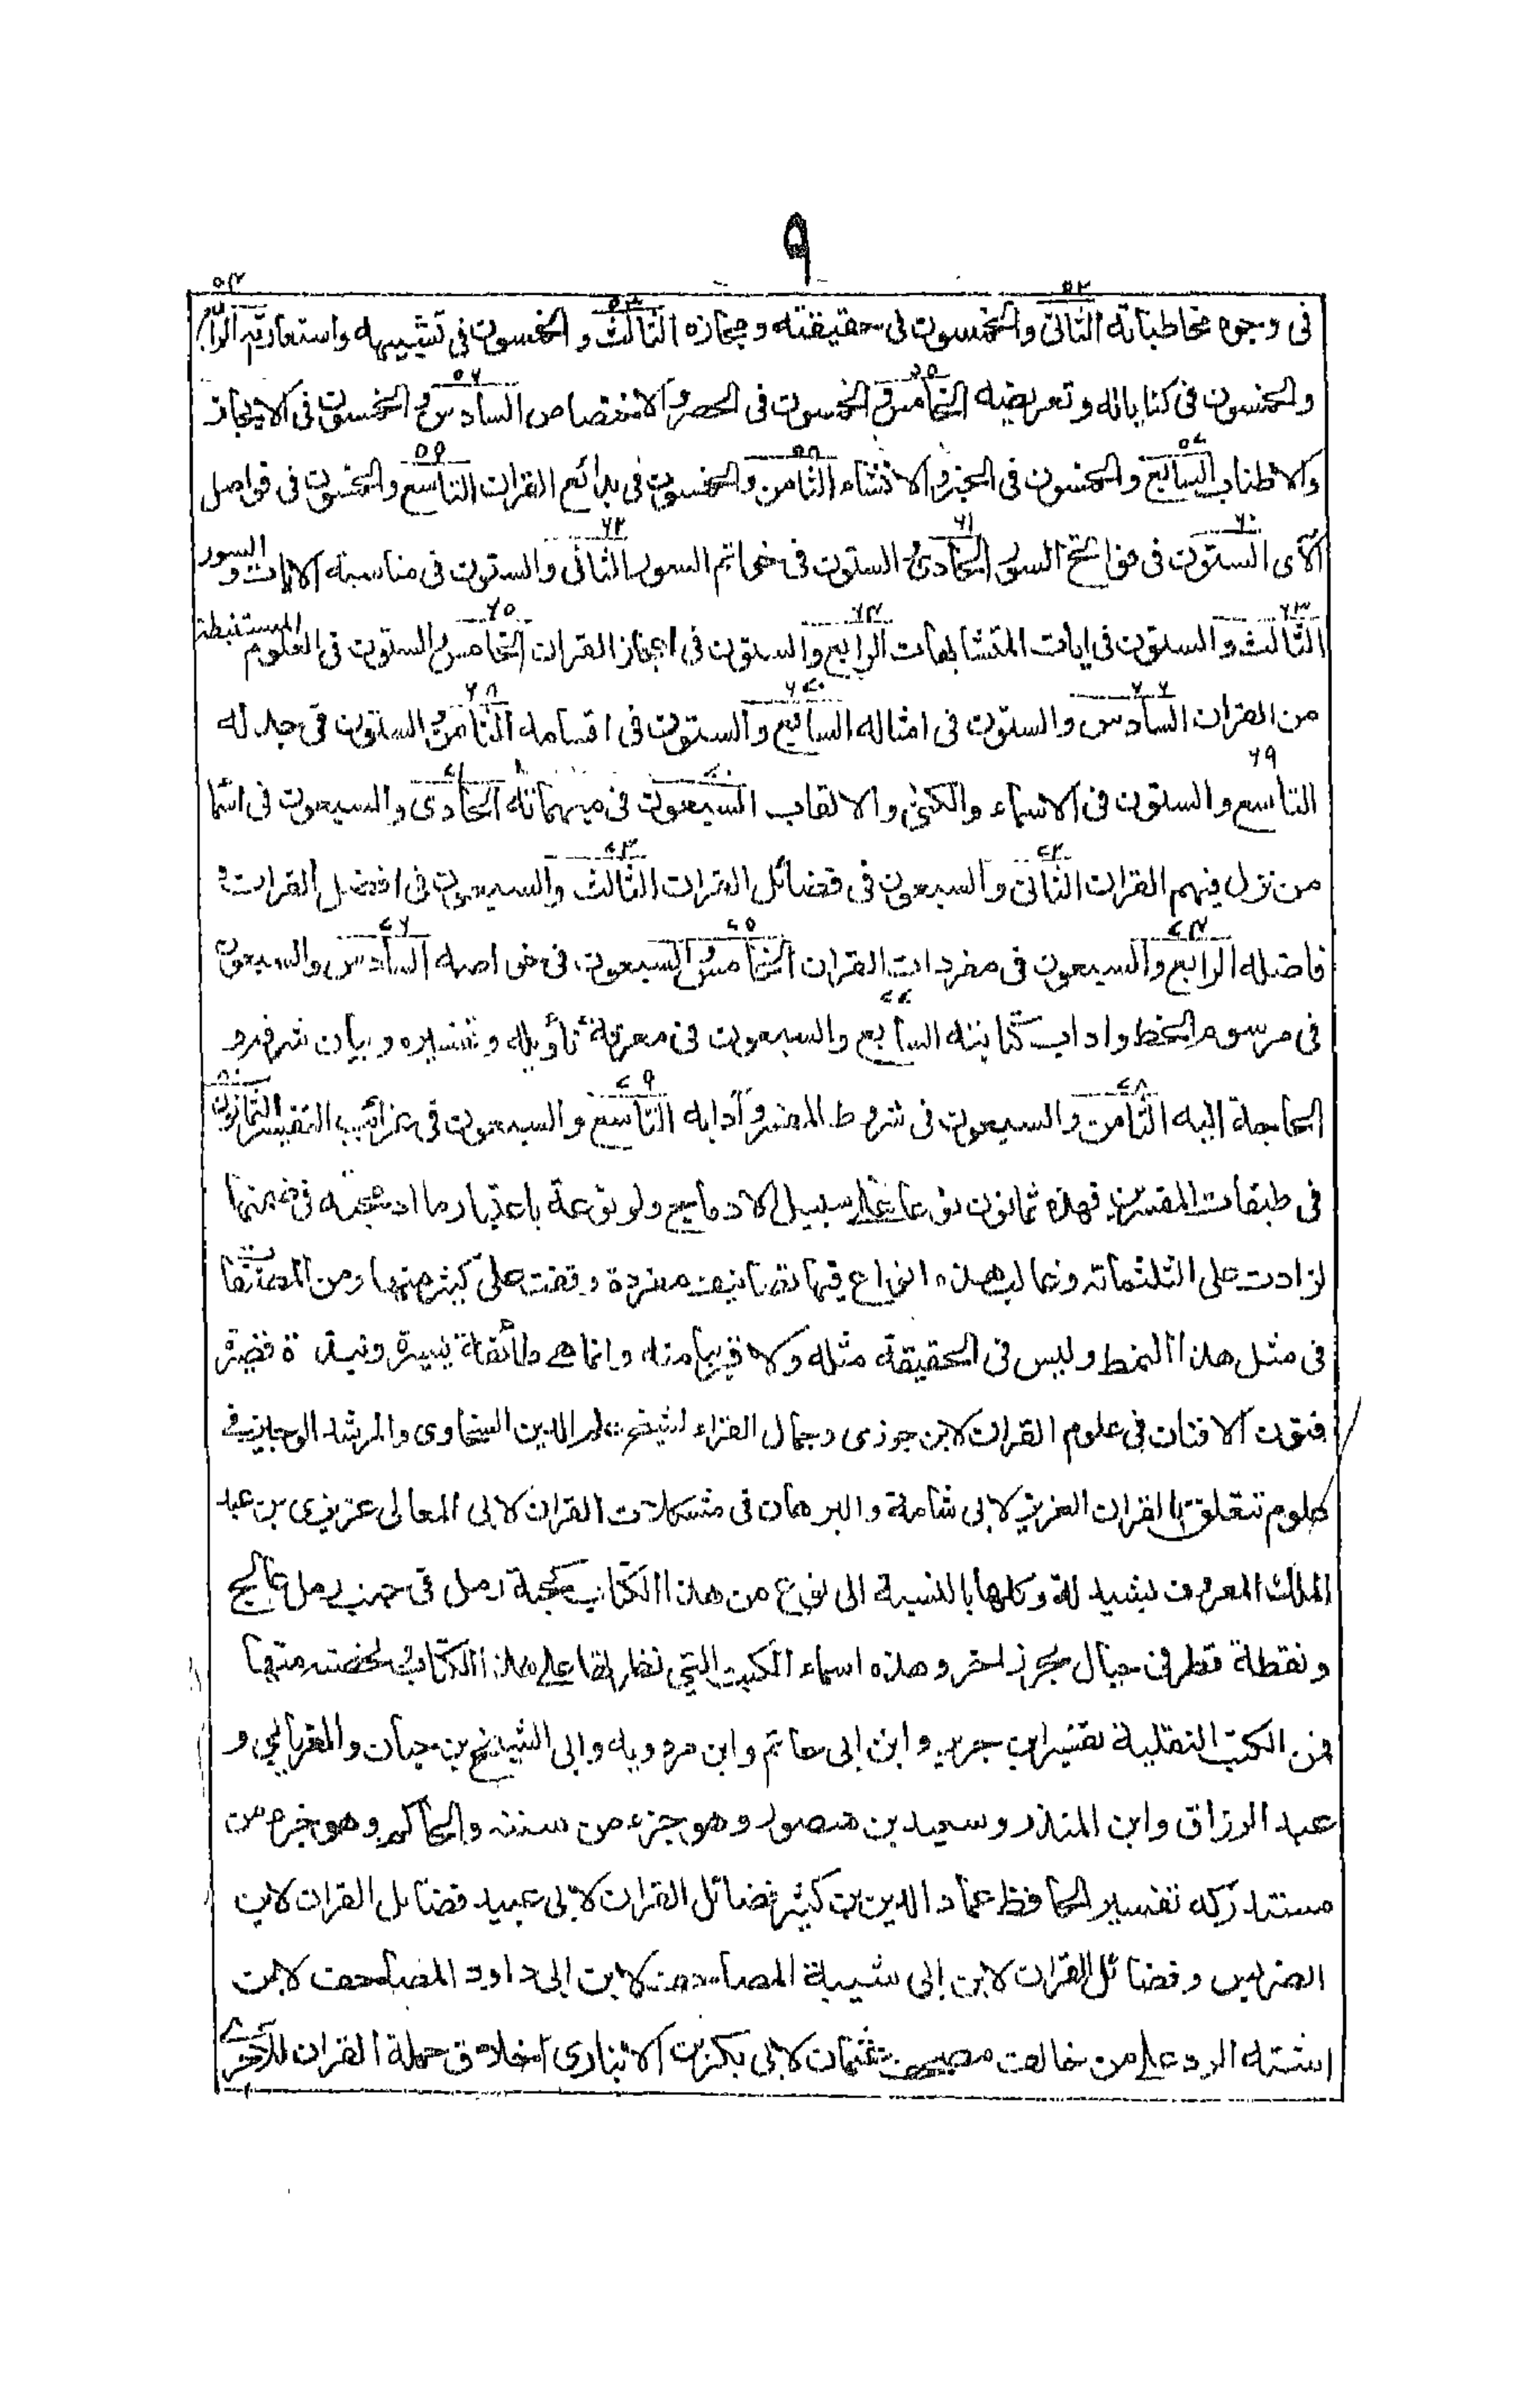 ٩
فى وجوه مخاطباته الثانى والخمسون فى حقيقته ومجازه الثالث والخمسون فى تشبيهه واستعاراته الرابع
والخمسون فى كناياته وتعريضه الخامس والخمسون فى الحصر والاختصاص السادس والخمسون فى الايجاز
والاطناب السابع والخمسون فى الخبر والانشاء الثامن والخمسون فى بدائع القران التاسع والخمسون فى فواصل
الآى الستون فى فواتح السور الحادى والستون فى خواتم السور الثانى والستون فى مناسبة الايات والسور
الثالث والستون فى ايات المتشابهات الرابع والستون فى اعجاز القران الخامس والستون فى العلوم المستنبطة
من القران السادس والستون فى امثاله السابع والستون فى اقسامه الثامن والستون فى جدله
التاسع والستون فى الاسماء والكنى والالقاب السبعون فى مبهماته الحادى والسبعون فى اسما
من نزل فيهم القران الثانى والسبعون فى فضائل القران الثالث والسبعون فى افضل القران و
فاضله الرابع والسبعون فى مفردات القران الخامس والسبعون فى خواصه السادس والسبعون
فى مرسوم الخط واداب كتابته السابع والسبعون فى معرفة تأويله وتفسيره وبيان شرفه و
الحاجة اليه الثامن والسبعون فى شروط المفسر وآدابه التاسع والسبعون فى غرائب التفسير الثمانون
فى طبقات المفسرين فهذه ثمانون نوعا على سبيل الادماج ولو نوعت باعتبار ما ادمجته فى ضمنها
لزادت على الثلثمائة وغالب هذه الانواع فيها تصانيف مفردة وقفت على كثير منها ومن المصنفات
فى مثل هذا النمط وليس فى الحقيقة مثله ولا قريبا منه وانما هى طائفة يسيرة ونبذة قصيرة
فنون الافنان فى علوم القران لابن جوزى وجمال القراء لشيخ علم الدين السخاوى والمرشد الوجيز فى
علوم تتعلق بالقران العزيز لابى شامة والبرهان فى مشكلات القران لابى المعالى عزيزى بن عبد
الملك المعروف بشيدلة وكلها بالنسبة الى نوع من هذا الكتاب كحبة رمل فى جنب رمل عالج
ونقطة قطر فى حيال بحر زاخر وهذه اسماء الكتب التى نظرتها على هذا الكتاب ولخصته منها
فمن الكتب النقلية تفسير ابن جرير وابن ابى حاتم وابن مردويه وابى الشيخ بن حيان والفريابى و
عبد الرزاق وابن المنذر وسعيد بن منصور وهو جزء من سننه والحاكم وهو جزء من
مستدركه تفسير الحافظ عماد الدين بن كثير فضائل القران لابى عبيد فضائل القران لابن
الضريس وفضائل القران لابن ابى شيبة المصاحف لابن ابى داود المصاحف لابن
اشته الرد على من خالف مصحف عثمان لابى بكر بن الانبارى اخلاق حملة القران للآجرى